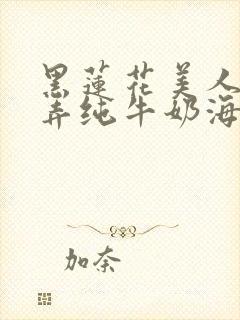 黑莲花美人
弄纯牛奶海
加奈